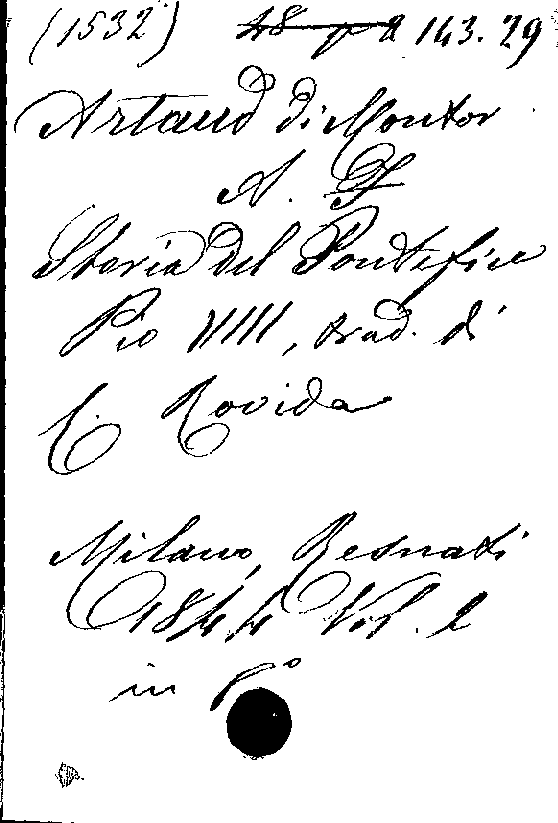 (1532) 48 143.29
Artaud di Montor
A. F
Storia del Pontefice
Pio VIIII, trad. di
C. Rovida
Milano, Resnati
1844 Vol. 1
in 8°